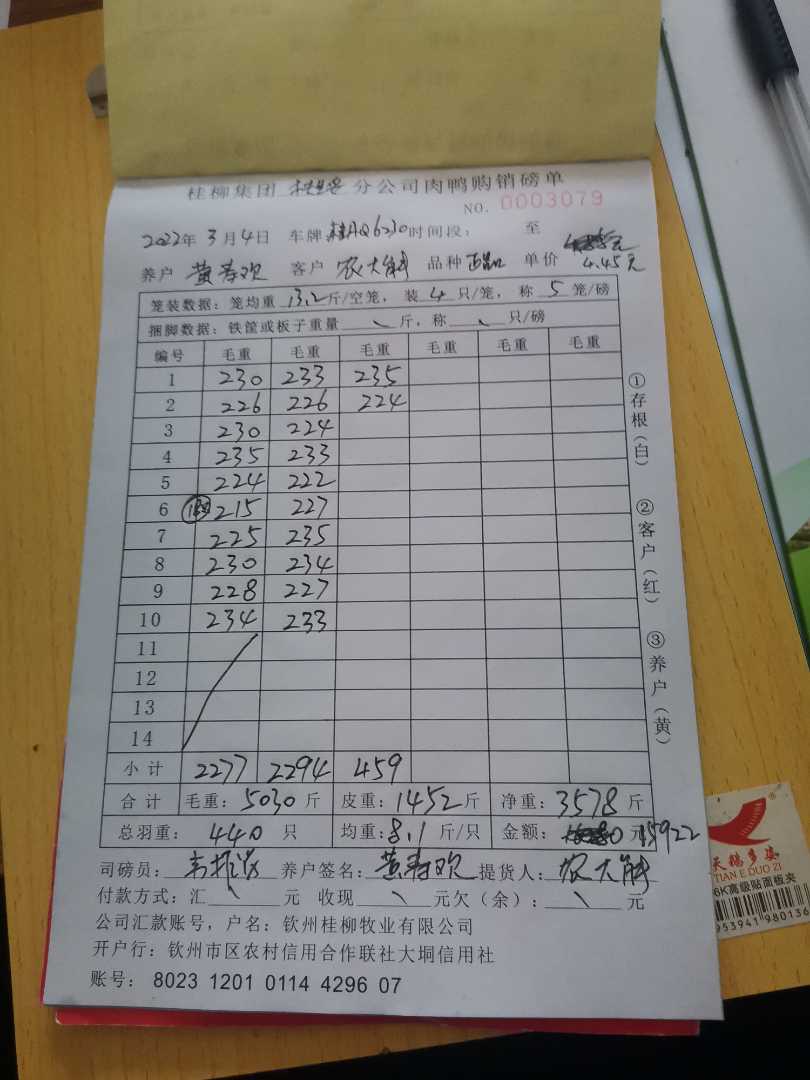 桂柳集团 分公司肉鸭购销磅单
NO. 0003079
2022年 3月4日 车牌 桂AQ6230 时间段： 至
养户 黄寿欢 客户 农大解 品种 正品 单价 4.45元
笼装数据：笼均重 13.2 斤/空笼，装 4 只/笼，称 5 笼/磅
捆脚数据：铁筐或板子重量 、 斤，称 、 只/磅
编号 毛重 毛重 毛重 毛重 毛重 毛重
1 230 233 235
2 226 226 224
3 230 224
4 235 233
5 224 222
6 215 227
7 225 235
8 230 234
9 228 227
10 234 233
11
12
13
14
小计 2277 2294 459
合计 毛重：5030斤 皮重：1452斤 净重：3578斤
总羽重： 440 只 均重：8.1 斤/只 金额： 元 15922
司磅员： 养户签名：黄寿欢 提货人：农大解
付款方式：汇 、 元 收现 、 元欠（余）： 、 元
公司汇款账号，户名：钦州桂柳牧业有限公司
开户行：钦州市区农村信用合作联社大垌信用社
账号： 8023 1201 0114 4296 07
①存根（白）
②客户（红）
③养户（黄）
天鹅多姿
TIAN E DUO ZI
6K高级贴面板夹
953941 980136